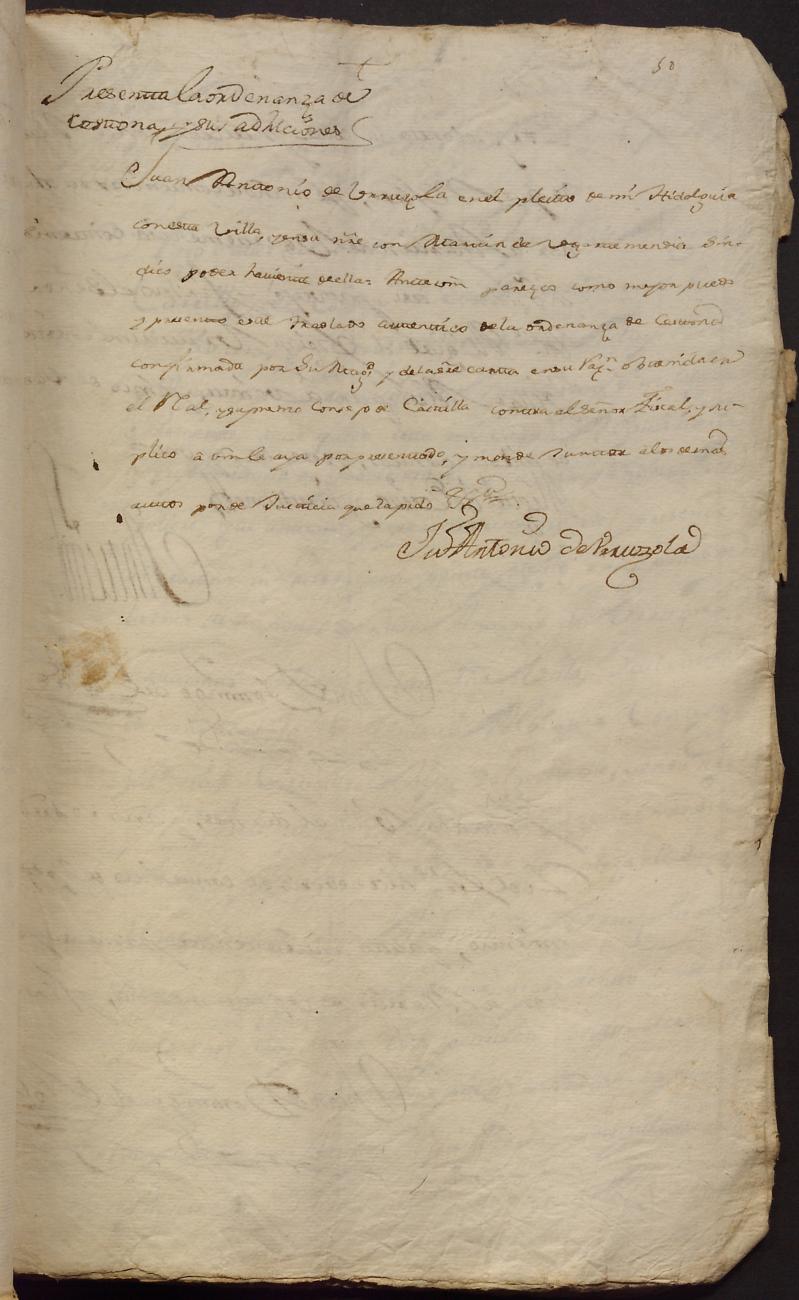 50
Presenta la ordenanza de
Cestona, y sus adiciones
Juan Antonio de Urruzola en el pleito de mi Hidalguia
con esta Villa, y en su nre con Martin de Sin-
dico poder haviente de ella: Ante vm parezco como mejor puedo
y presento este traslado autentico de la ordenanza de Cestona
confirmada por Su Magd y de la sre carta en su obtenida en
el Rl, y supremo Consejo de Castilla contra el señor Fiscal, y su-
plico a vm le aya por presentado, y mande juntar a los demas
autos por de Justicia que la pido
Jn Antonio de Urruzola